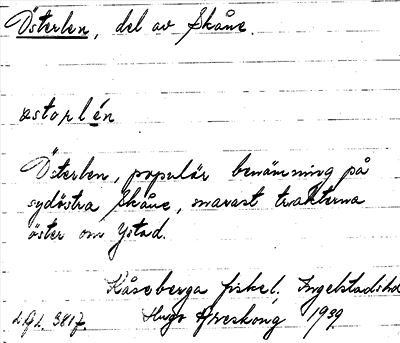 Österlen, del av Skåne.
østorlén
Österlen, populär benämning på
sydöstra Skåne, snarast trakterna
öster om Ystad.
Kåseberga fiskel. Ingelstads hd
L.G.L. 3817. Hugo Areskoug 1939.